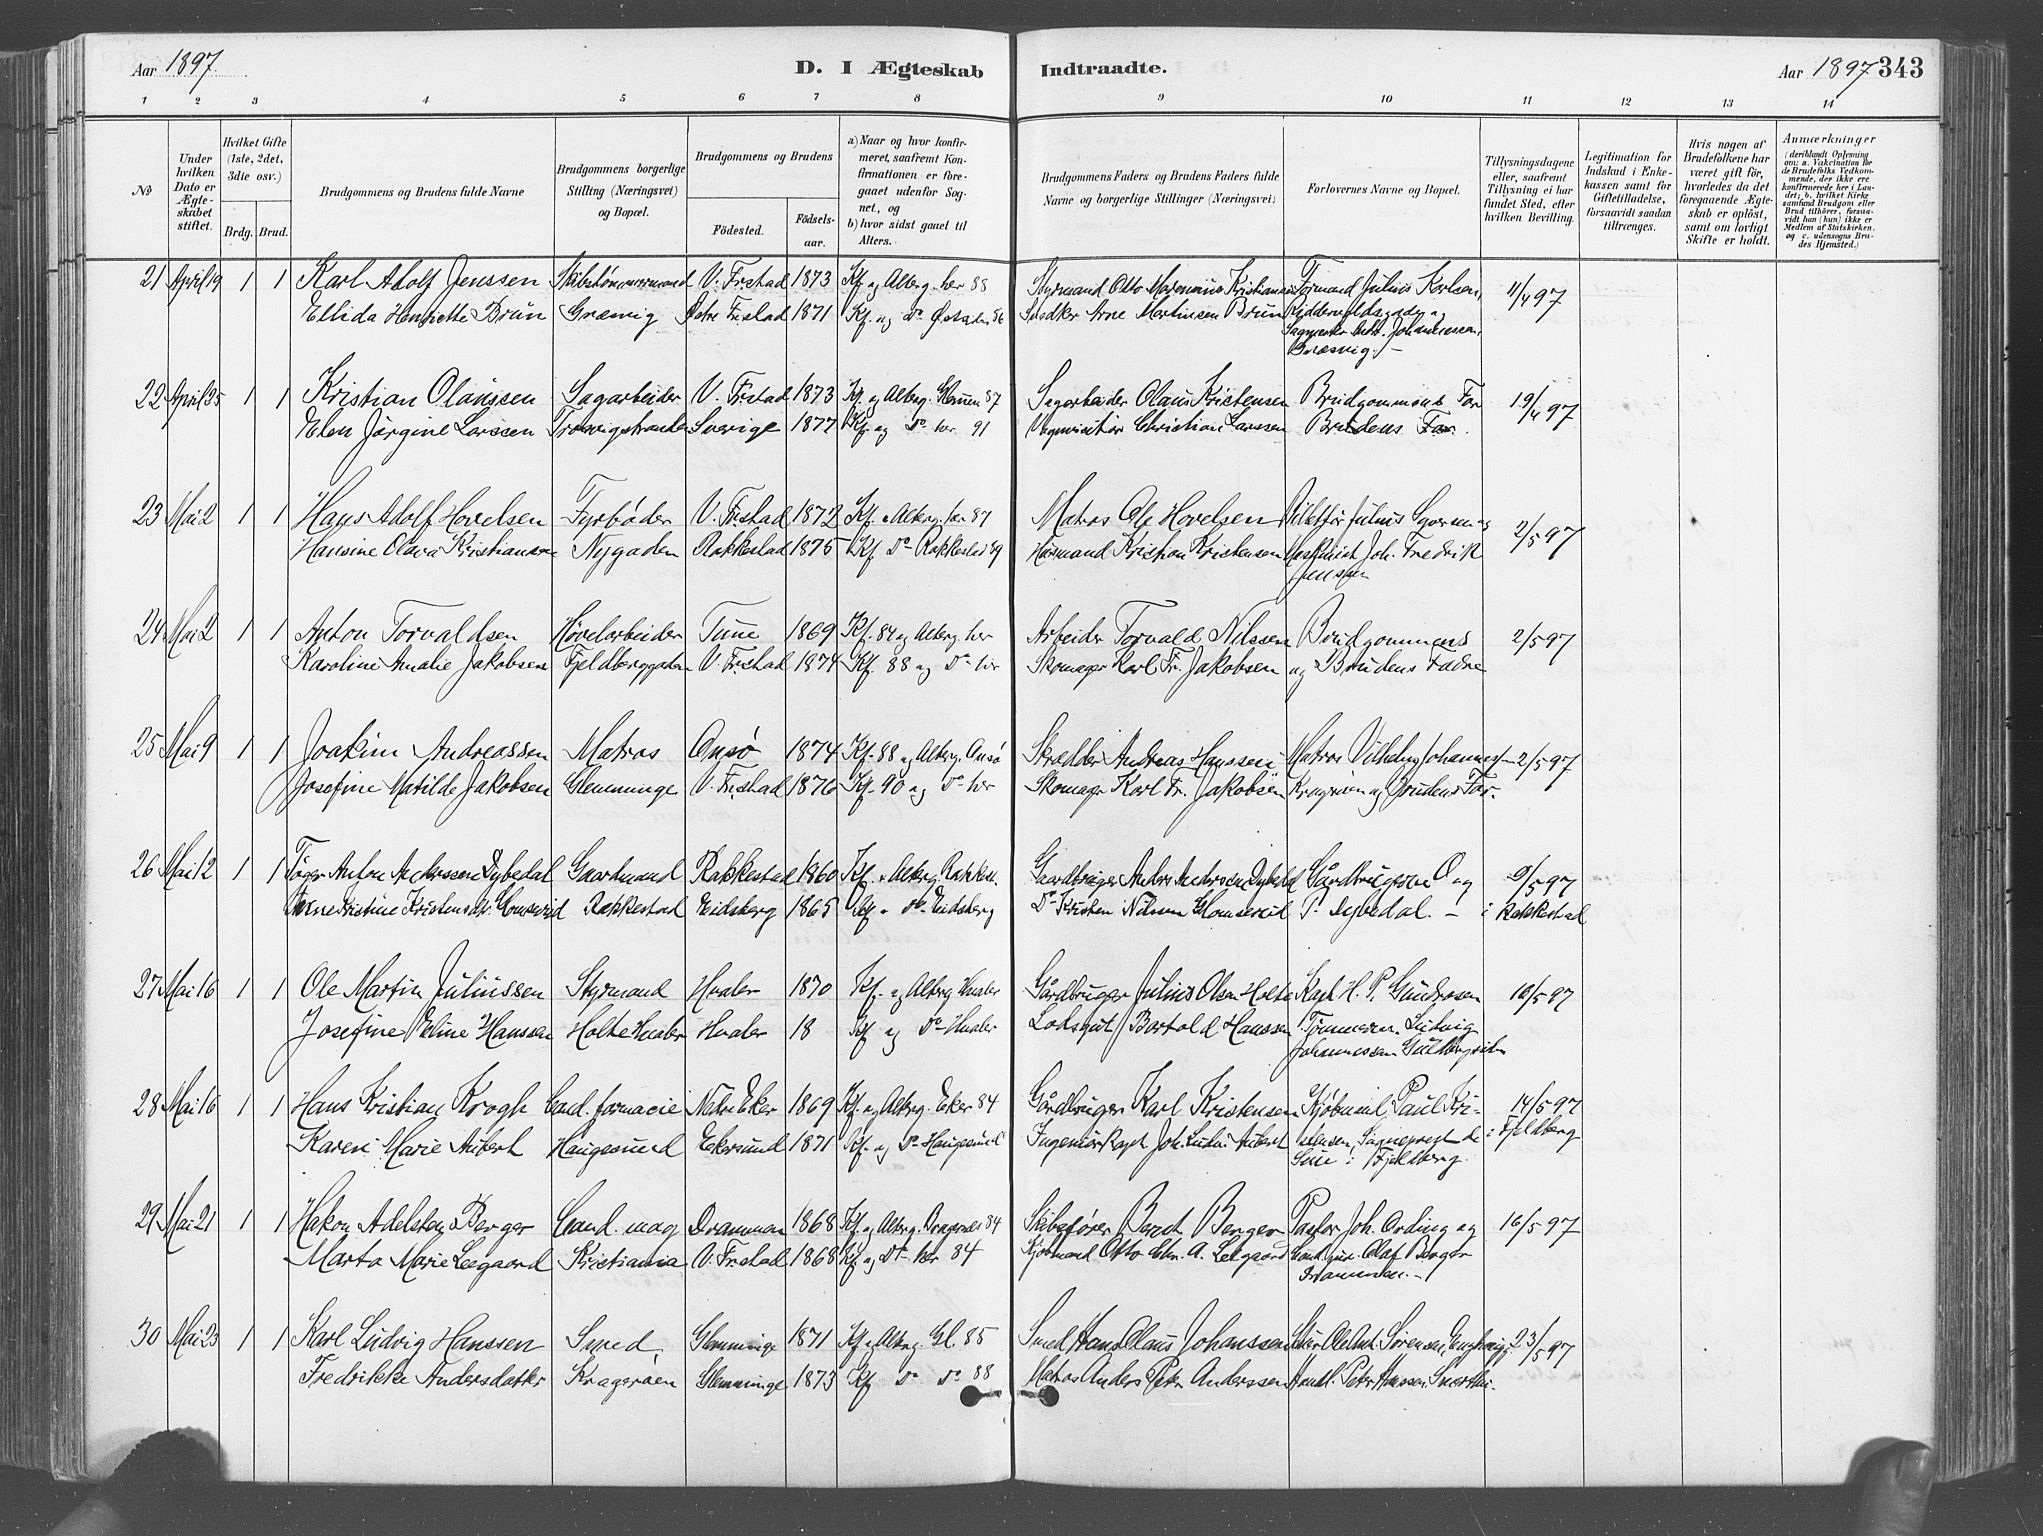 Aar 1897
D. I Ægteskab
Indtraadte.
Aar 1897 343
1 2 3 4 5 6 7 8 9 10 11 12 13 14
No
Under hvilken Dato er Ægteskabet stiftet.
Hvilket Gifte (1ste, 2det, 3die osv.)
Brdg. Brud.
Brudgommens og Brudens fulde Navne
Brudgommens borgerlige Stilling (Næringsvei) og Bopæl.
Brudgommens og Brudens
Födested.
Födselsaar.
a) Naar og hvor konfirmeret, saafremt Konfirmationen er foregaaet udenfor Sognet, og
b) hvor sidst gaaet til Alters.
Brudgommens Faders og Brudens Faders fulde Navne og borgerlige Stillinger (Næringsvei)
Forlovernes Navne og Bopæl.
Tillysningsdagene eller, saafremt Tillysning ei har fundet Sted, efter hvilken Bevilling.
Legitimation for Indskud i Enkekassen samt for Giftetilladelse, forsaavidt saadan tiltrænges.
Hvis nogen af Brudefolkene har været gift før, hvorledes da det foregaaende Ægteskab er oplöst, samt om lovligt Skifte er holdt.
Anmærkninger
(deriblandt Oplysning om: a. Vakcination for de Brudefolks Vedkommende, der ikke ere konfirmerede her i Landet; b. hvilket Kirkesamfund Brudgom eller Brud tilhörer, forsaavidt han (hun) ikke er Medlem af Statskirken, og c. udensogns Brudes Hjemsted.)
21 April 19 1 1 Karl Adolf Jenssen Skibstømmermand V. Frstad 1873 Kf. og Alterg. her 88 Styrmand Otto Formand Julius Karlsen, 11/4 97
Ellida Henriette Brun Græsvig Østre Frstad 1871 Kf. og Do 86 Arne Martinsen Brun og
Johannessen,
Græsvig. –
22 April 25 1 1 Kristian Olaussen Sagarbeider V. Frstad 1873 Kf. og Alterg. Glemm 87 Sagarbeider Olaus Kristensen Brudgommens Far 19/4 97
Elen Jørgine Larssen Sverige 1877 Kf. og Do her 91 Christian Larssen Brudens Far.
23 Mai 2 1 1 Hans Adolf Hovelsen Fyrbøder V. Frstad 1872 Kf. Alterg. her 87 Matros Ole Hovelsen Julius og 2/5 97
Hansine Olava Kristiansen Nygaden Rakkestad 1875 Kf. Do Rakkestad 89 Kristian Kristensen Joh. Fredrik
Jenssen
24 Mai 2 1 1 Anton Torvaldsen Høvelarbeider Tune 1869 Kf. 84 og Alterg. her Arbeider Torvald Nilssen Brudgommens 2/5 97
Karoline Amalie Jakobsen Fjeldberggaden V. Frstad 1874 Kf. 88 og Do her Skomager Karl Fr. Jakobsen og Brudens Fædre
25 Mai 9 1 1 Joakim Andreassen Matros Onsø 1874 Kf. 88 og Alterg. Onsø Skrædder Andreas Hanssen Matros Vilhelm 2/5 97
Josefine Matilde Jakobsen Glemminge V. Frstad 1876 Kf. 90 og Do her Skomager Karl Fr. Jakobsen og Brudens Far.
26 Mai 12 1 1 Anton Anderssen Dybedal Gaardmand Rakkestad 1860 Kf. Alterg. Rakkest. Gaardbruger Anders Anderssen Dybedal Gårdbrugerne O. og 9/5 97
Kristensdtr. Rakkestad Eidsberg 1865 Kf. Do Eidsberg Do Kristen Nilssen P. Dybedal. – i Rakkestad
27 Mai 16 1 1 Ole Martin Juliussen Styrmand Hvaler 1870 Kf. og Alterg. Hvaler Gårdbruger Julius Olsen Holte Kapt. H. P. 16/5 97
Josefine Eline Hanssen Holte Hvaler Hvaler 18 Kf og Do Hvaler Bartold Hanssen Ludvig
Johannessen
28 Mai 16 1 1 Hans Kristian Krogh Cand. farmacie Nedre Eker 1869 Kf. og Alterg. Eker 84 Gårdbruger Karl Kristensen Kjøbmd. Paul Kri- 14/5 97
Karen Marie Aubert Haugesund Ekersund 1871 Kf. og Do Haugesund Ingeniør Kapt. Joh. Aubert stensen, Sogneprest de i Fjeldberg
Seue i Fjeldberg.
29 Mai 21 1 1 Hakon Adelsten Berger Cand. mag Drammen 1868 Kf. og Alterg. Bragernæs 84 Skibsfører Bernt Berger Pastor Joh. Ording og 16/5 97
Marta Marie Leegaard Kristiania V. Frstad 1868 Kf. og Do her 84 Kjøbmand Otto Chr. A. Leegaard Cand. jur. Olaf Berger
Drammen. –
30 Mai 23 1 1 Karl Ludvig Hanssen Smed, Glemminge 1871 Kf. Alterg. Gl. 85 Smed Hans Olaus Johanssen Ole Ant. Sørensen, 23/5 97
Fredrikke Andersdatter Kragerøen Glemminge 1873 Kf. Do Do 88 Matros Anders Petr. Anderssen Handl. Peter Hanssen